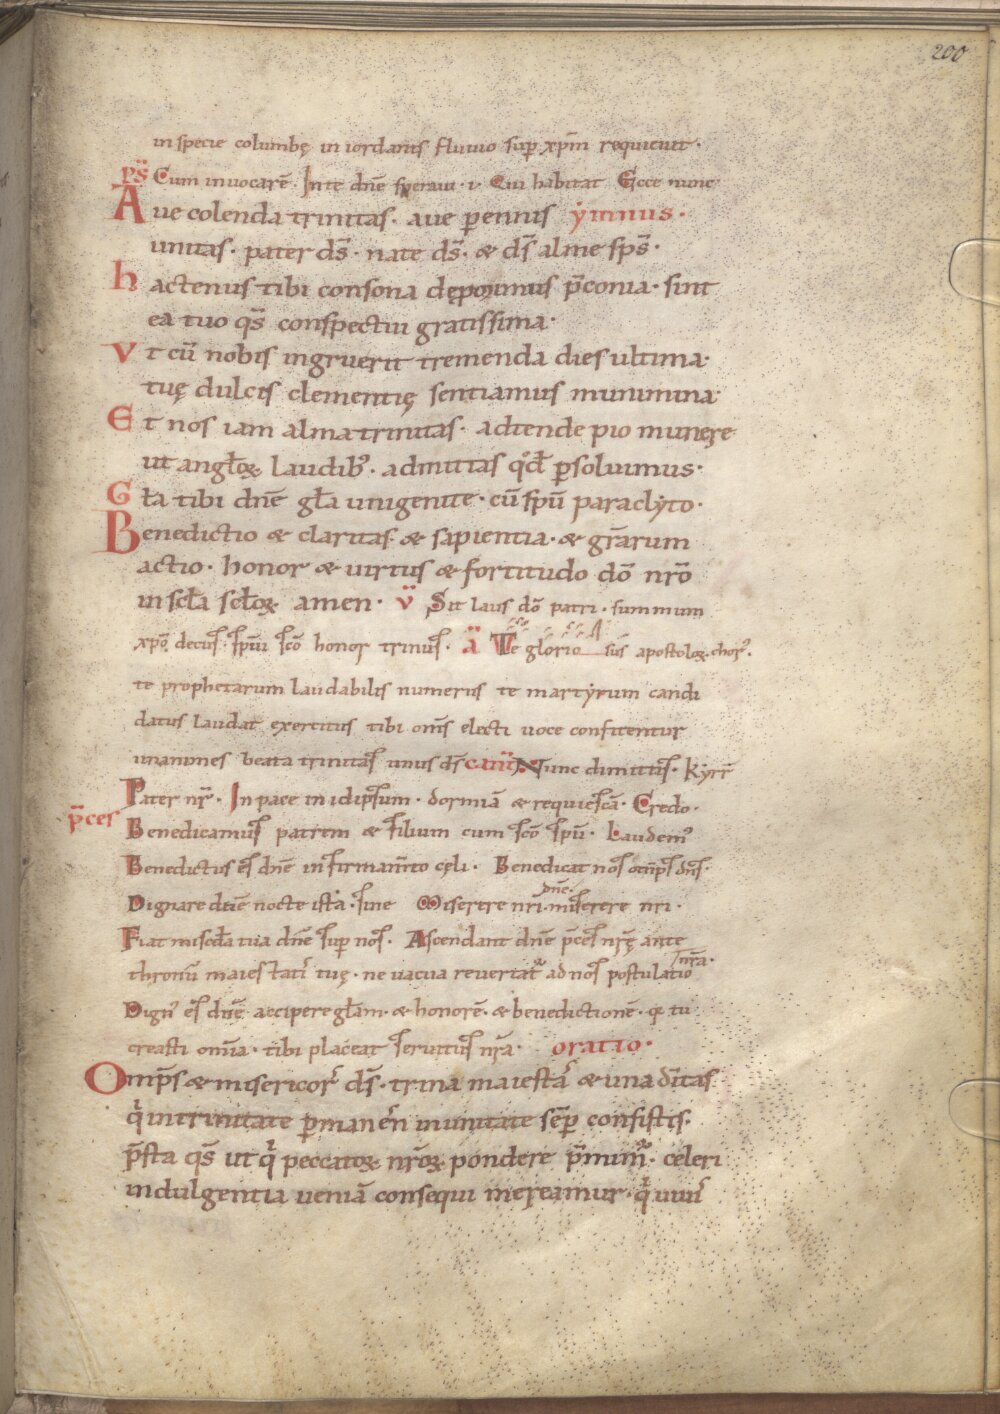 200
in specie columbę in iordanis fluuio sup̄ xp̄m requieuit ·
ps̄ Cum inuocarē · In te dn̄e speraui · i · Qui habitat Ecce nunc
Aue colenda trinitas · aue p̄ennis ẏmnus ·
unitas · pater dſ̄ · nate dſ̄ · & dſ̄ alme spſ̄ ·
hactenus tibi consona depromimus p̄conia · sint
ea tuo qſ̄ conspectui gratissima ·
Vt cū nobis ingruerit tremenda dies ultima ·
tuę dulcis clementię sentiamus munimina ·
Et nos iam alma trinitas · adtende pio munere
ut angłoꝝ laudibꝰ · admittas qd̄ p̄soluimus ·
Gła tibi dn̄e gła unigenite · cū spū paraclẏto ·
Benedictio & claritas & sapientia · & gr̄arum
actio · honor & uirtus & fortitudo dō nr̄o
in scła scłoꝝ amen · v̈ Sit laus dō patri · summum
xpō decus · spūi sc̄o honor trinus · ä Te glorio sus apostoloꝝ chorꝰ ·
te prophetarum laudabilis numerus te martẏrum candi
datus laudat exercitus tibi om̄s electi uoce confitentur
unanimes beata trinitas unus dſ̄ cant̄ Nunc dimittis · Kyrr̄
Pater nr̄ · In pace in idipsum · dormiā & requiescā · Credo ·
p̄ces Benedicamus patrem & filium cum sc̄o spū · Laudemꝰ
Benedictus es dn̄e in firmam̄to cęli · Benedicat nos om̄ps dn̄s ·
Dignare dn̄e nocte ista · sine Miserere nri · dn̄e · miserere nri ·
Fiat miscđa tua dn̄e sup̄ nos · Ascendant dn̄e p̄ces nrę ante
thronū maiestatis tuę · ne uacua reuertat̄ ad nos postulatio nr̄a ·
Dignꝰ es dn̄e accipere głam · & honorē · & benedictionē · q̄ tu
creasti om̄ia · tibi placeat seruitus nr̄a · oratio ·
Omp̄s & misericors dſ̄ · trina maiestas & una d̄itas
q̄ in trinitate p̄manēn in unitate sēp consistis ·
p̄sta qſ̄ ut q̄ peccatoꝝ nr̄oꝝ pondere p̄mimur · celeri
indulgentia ueniā consequi mereamur · q̄ uiuis